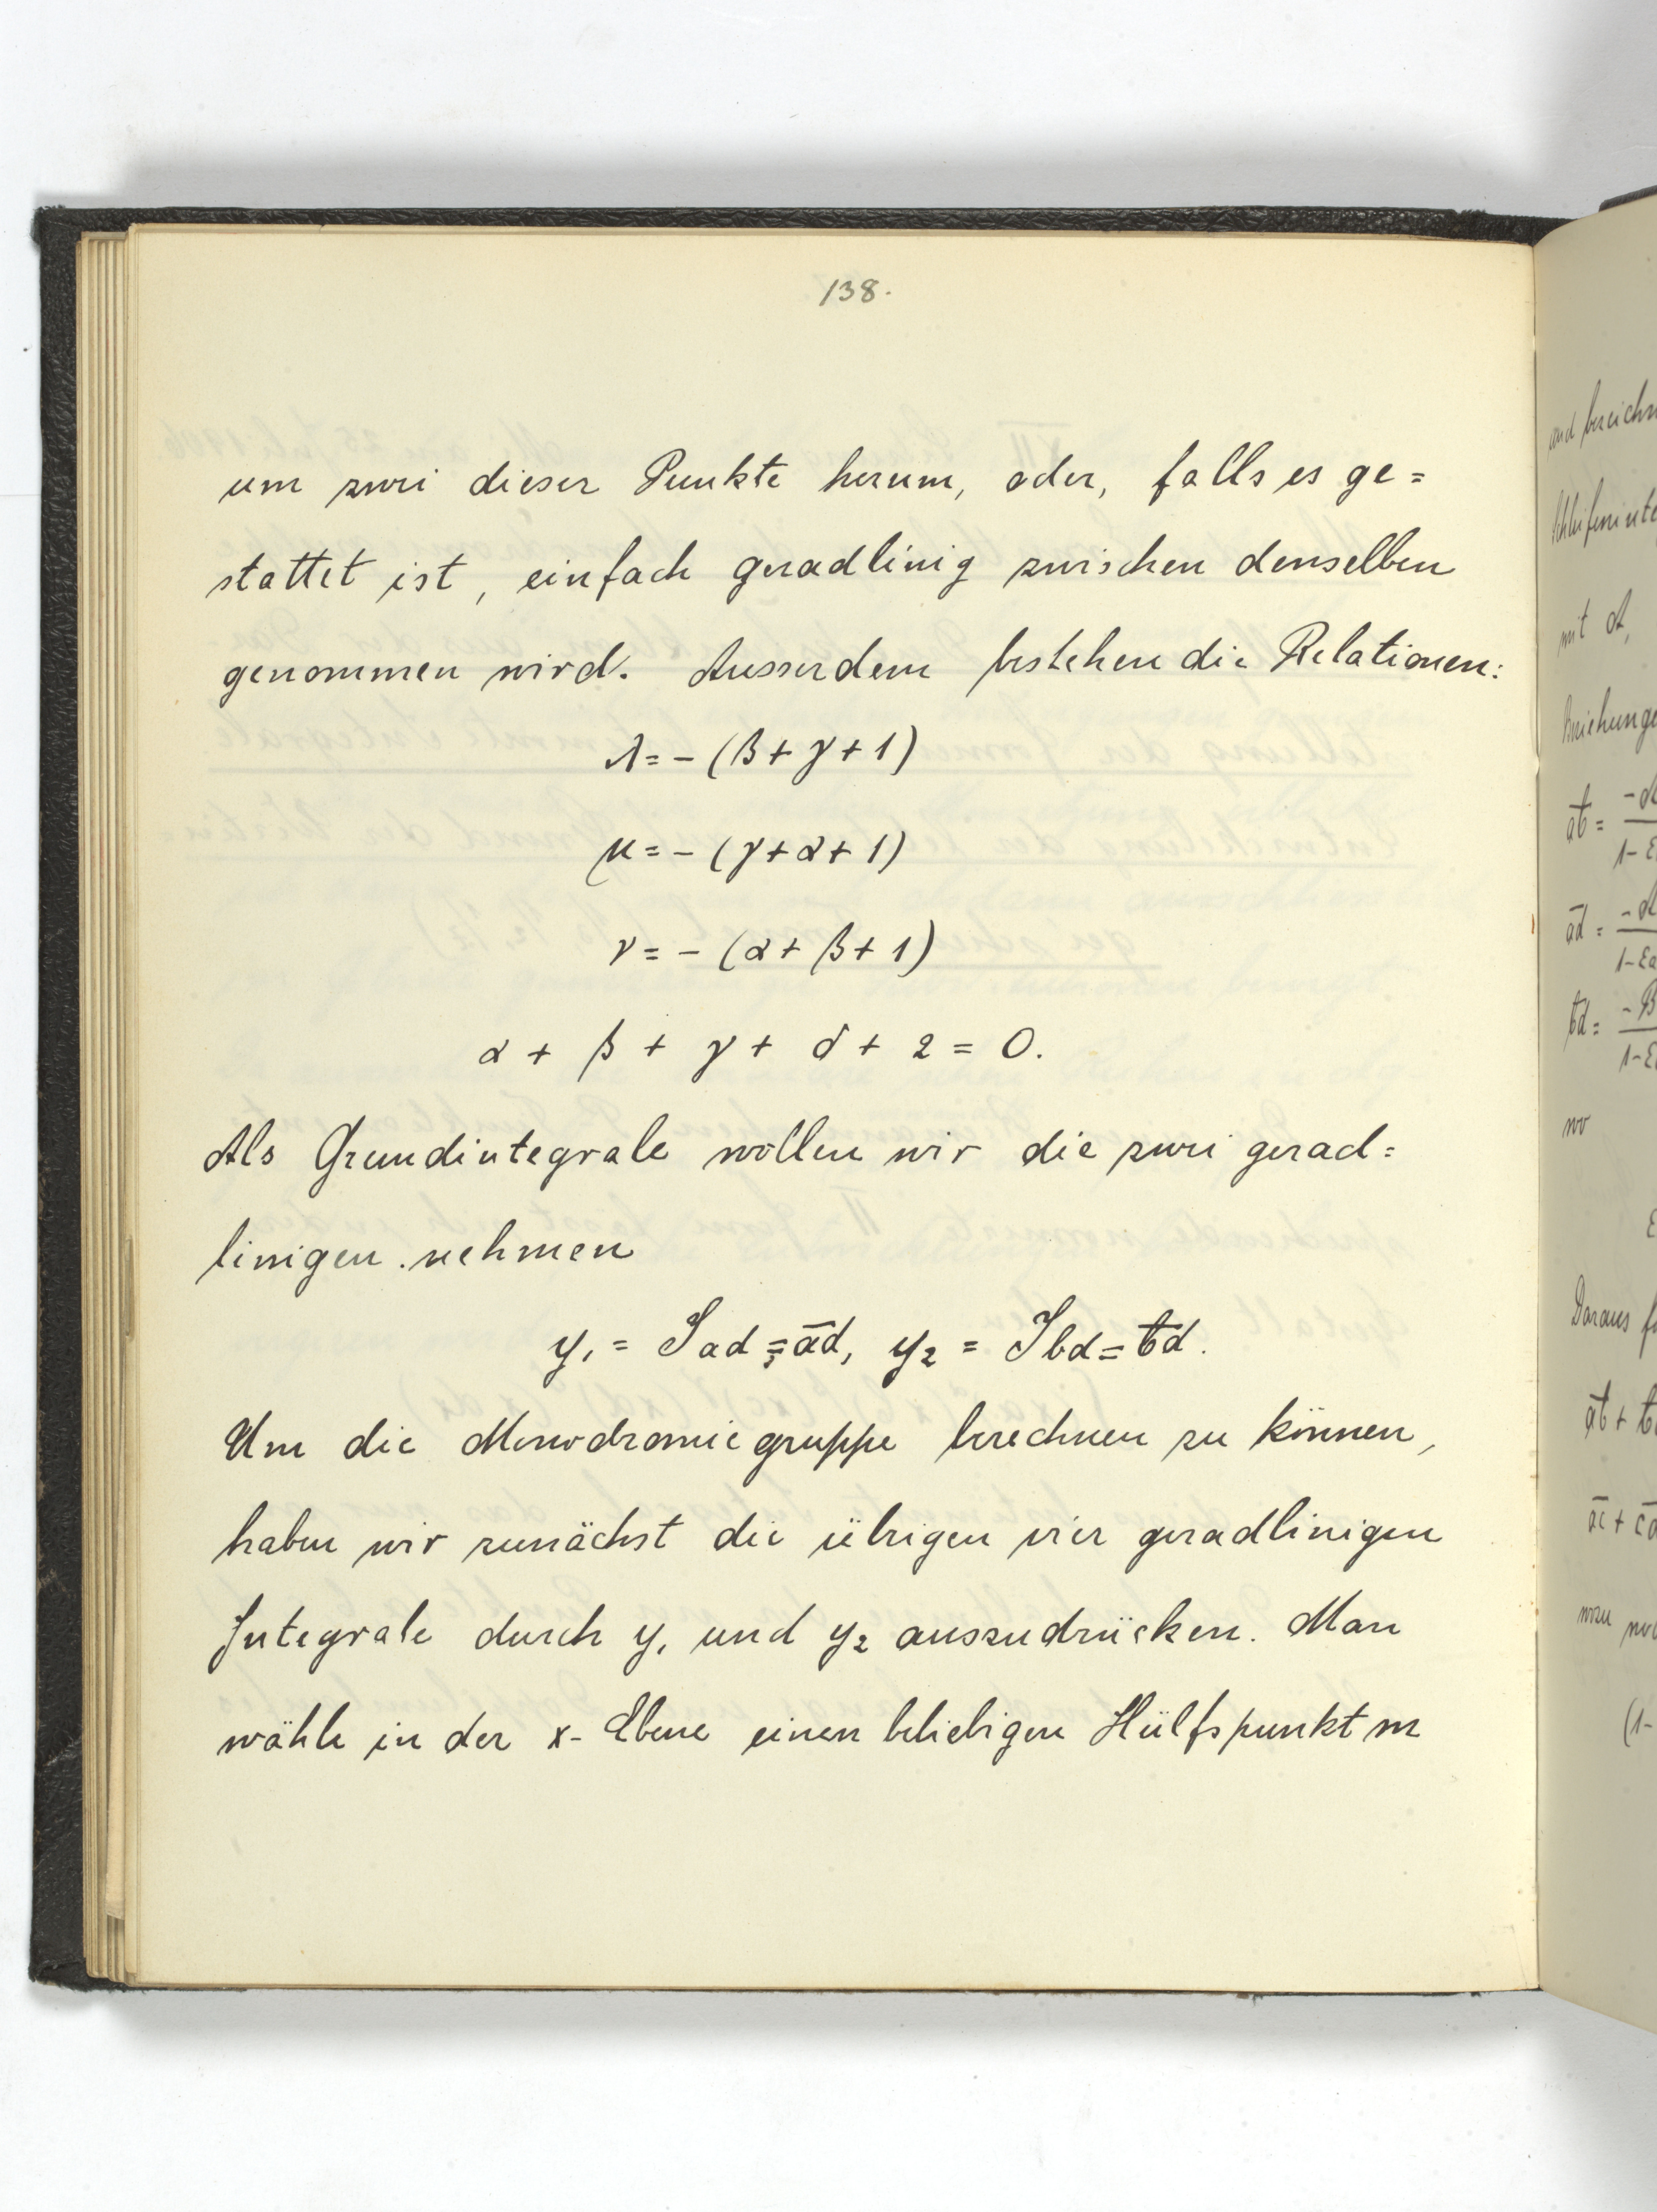 138.
um zwei dieser Punkte herum, oder, falls es ge=
stattet ist, einfach geradlinig zwischen denselben
genommen wird. Ausserdem bestehen die Relationen:
λ = - (β + γ + 1)
μ = - (γ + α + 1)
ν = - (α + β + 1)
α + β + γ + δ + 2 = 0.
Als Grundintegrale wollen wir die zwei gerad=
linigen nehmen
y₁ = Jad = a̅d, y₂ = Jbd = b̅d.
Um die Monodromiegruppe berechnen zu können,
haben wir zunächst die übrigen vier geradlinigen
Integrale durch y₁ und y₂ auszudrücken. Man
wähle in der x-Ebene einen beliebigen Hülfspunkt m
mit
wo
Daraus